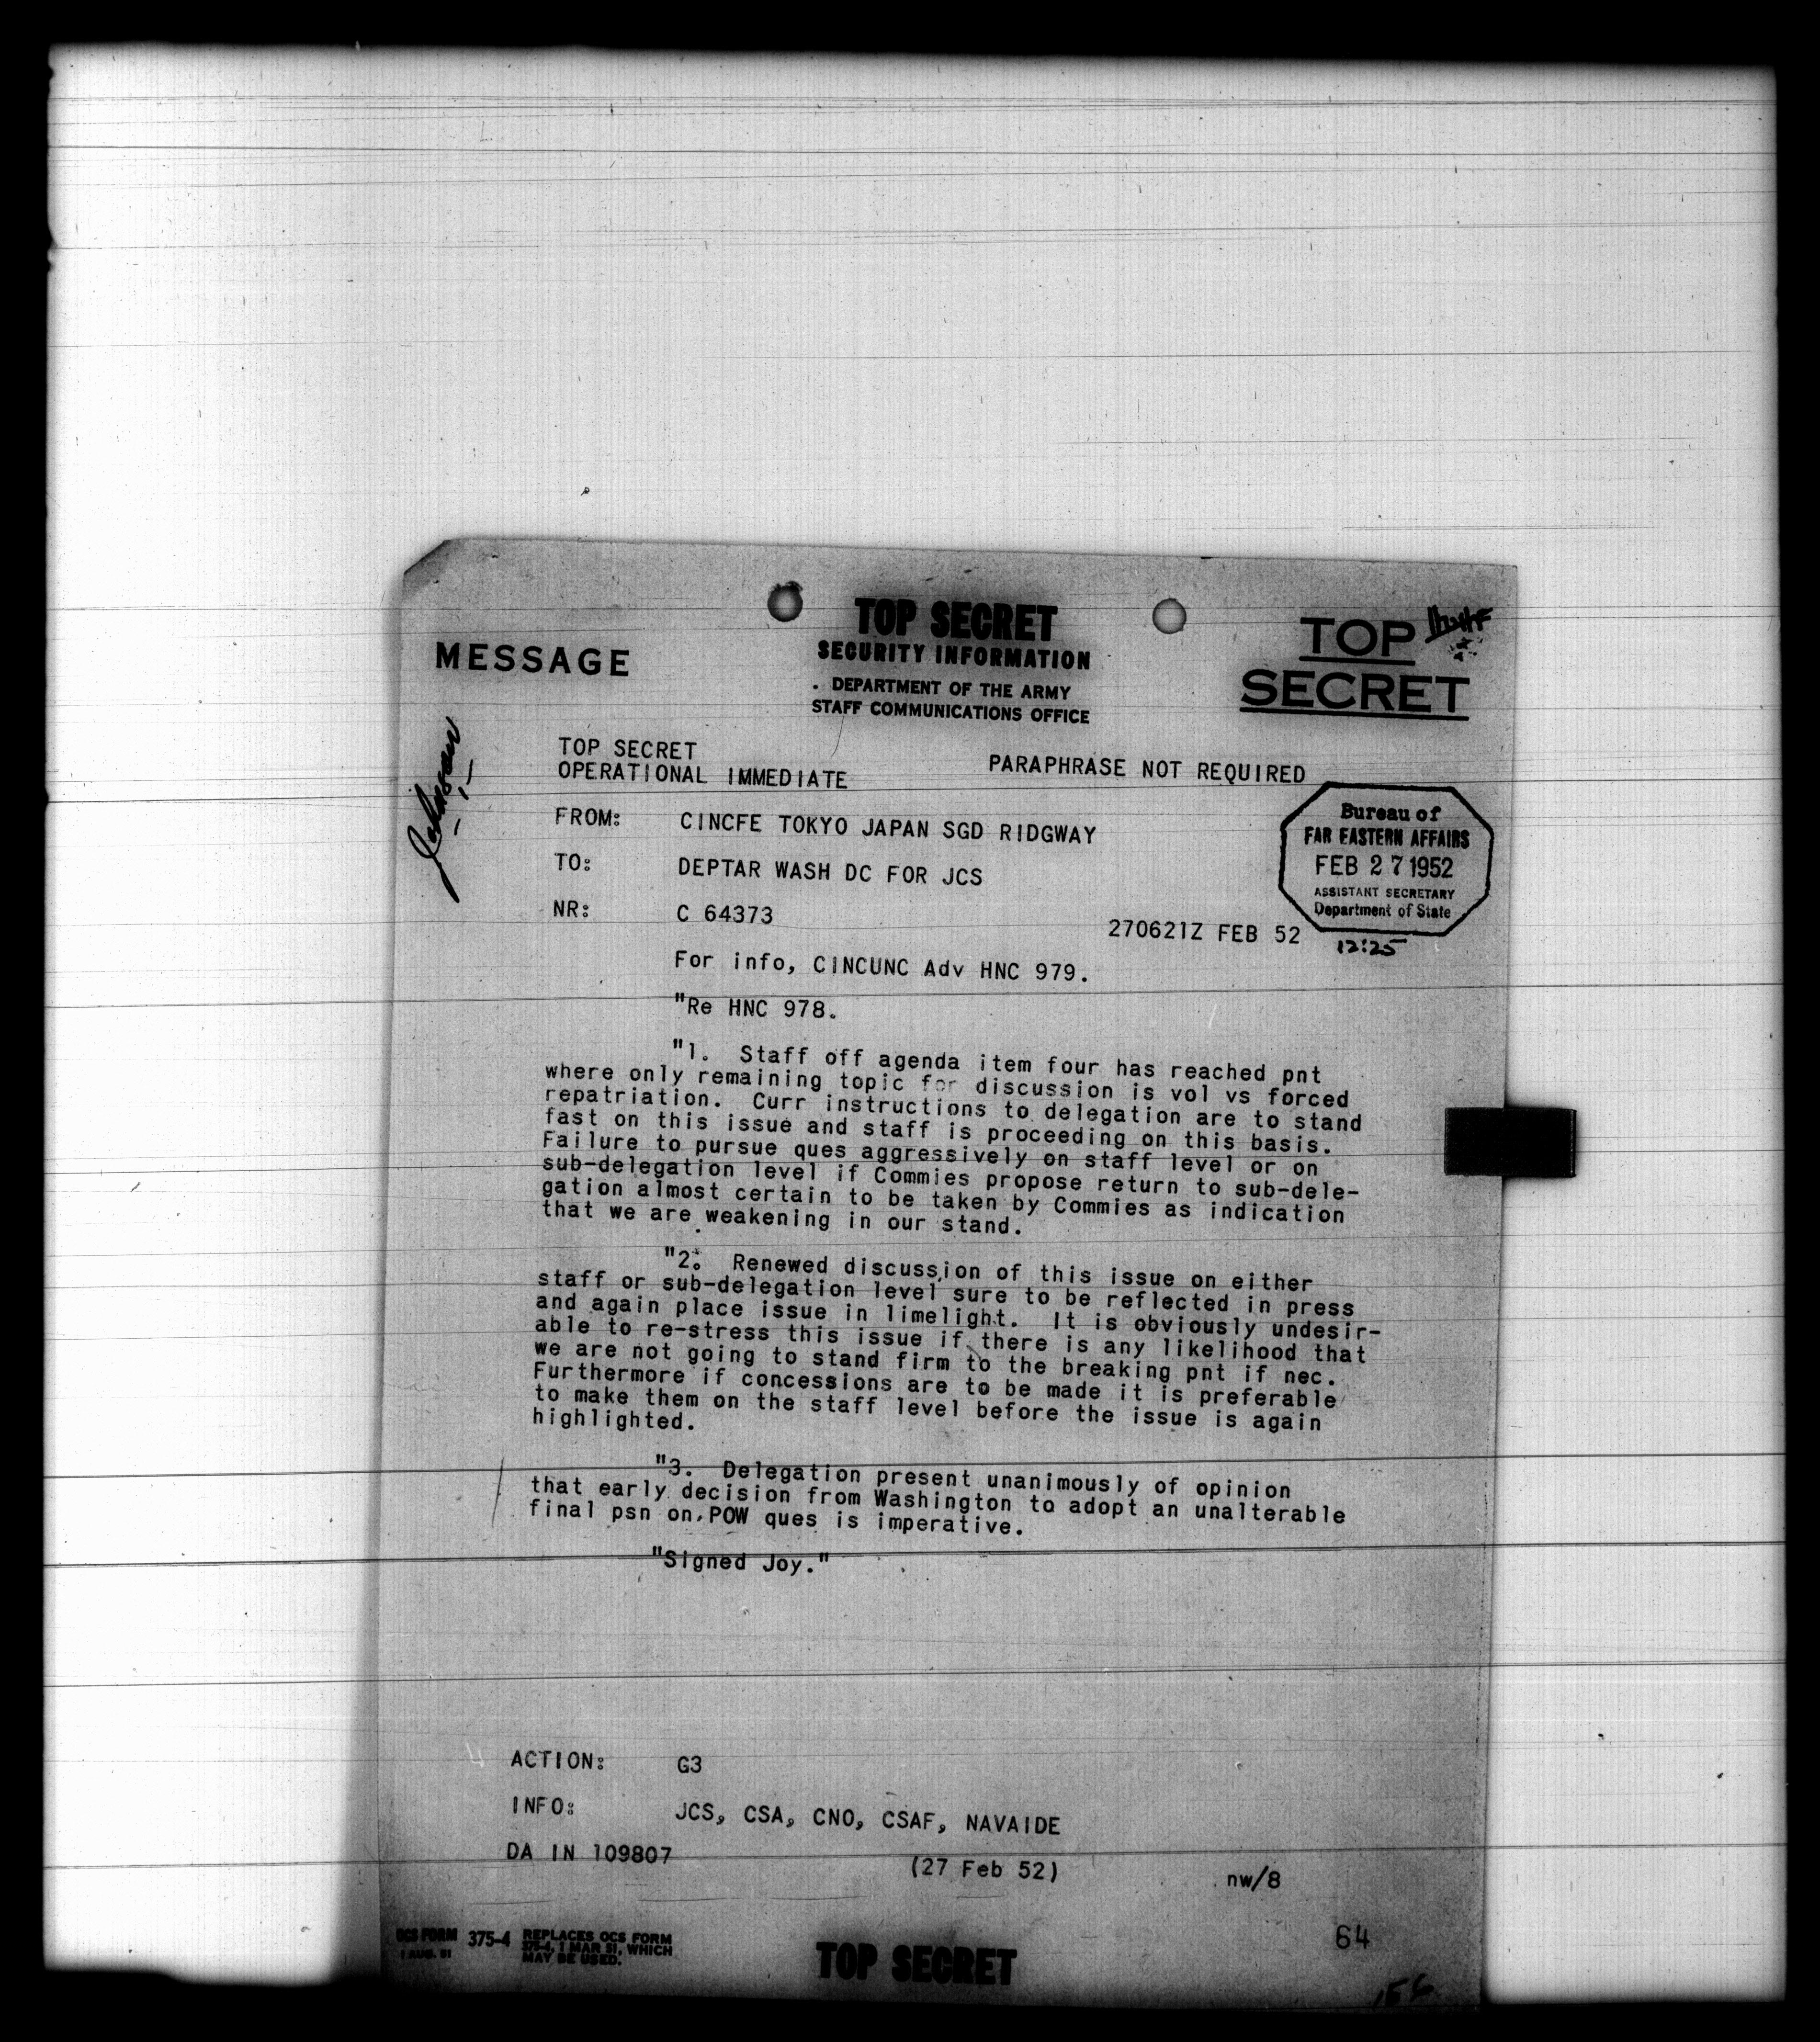 TOP SECRET
SECURITY INFORMATION
MESSAGE
TOP
SECRET
DEPARTMENT OF THE ARMY
STAFF COMMUNICATIONS OFFICE
Johnson
TOP SECRET
OPERATIONAL IMMEDIATE
PARAPHRASE NOT REQUIRED
FROM: CINCFE TOKYO JAPAN SGD RIDGWAY
TO: DEPTAR WASH DC FOR JCS
NR: C 64373
270621Z FEB 52
Bureau of
FAR EASTERN AFFAIRS
FEB 27 1952
ASSISTANT SECRETARY
Department of State
12:25
For info, CINCUNC Adv HNC 979.
"Re HNC 978.
"1. Staff off agenda item four has reached pnt
where only remaining topic for discussion is vol vs forced
repatriation. Curr instructions to delegation are to stand
fast on this issue and staff is proceeding on this basis.
Failure to pursue ques aggressively on staff level or on
sub-delegation level if Commies propose return to sub-dele-
gation almost certain to be taken by Commies as indication
that we are weakening in our stand.
"2. Renewed discussion of this issue on either
staff or sub-delegation level sure to be reflected in press
and again place issue in limelight. It is obviously undesir-
able to re-stress this issue if there is any likelihood that
we are not going to stand firm to the breaking pnt if nec.
Furthermore if concessions are to be made it is preferable
to make them on the staff level before the issue is again
highlighted.
"3. Delegation present unanimously of opinion
that early decision from Washington to adopt an unalterable
final psn on POW ques is imperative.
"Signed Joy."
ACTION: G3
INFO: JCS, CSA, CNO, CSAF, NAVAIDE
DA IN 109807
(27 Feb 52)
nw/8
OCS FORM 375-4 REPLACES OCS FORM
1 AUG. 51 375-4, 1 MAR 51, WHICH
MAY BE USED.
TOP SECRET
64